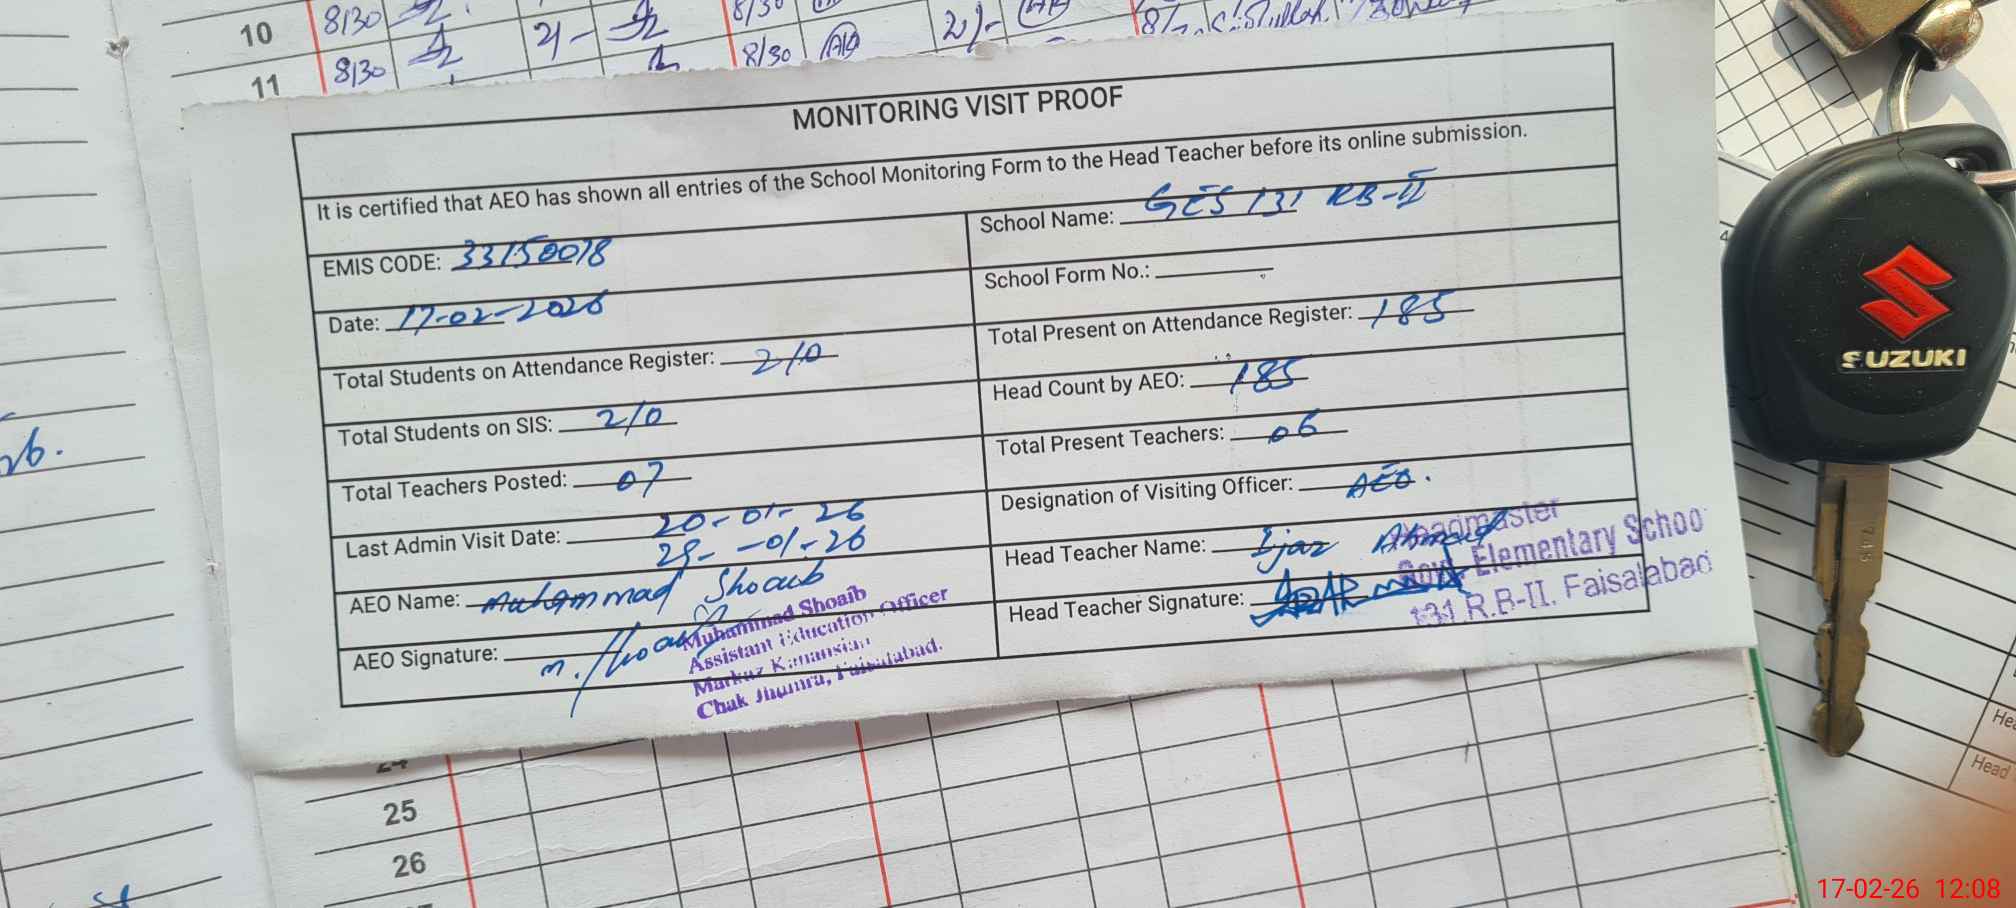 10 8/30 21-
11 8/30 8/30
MONITORING VISIT PROOF
It is certified that AEO has shown all entries of the School Monitoring Form to the Head Teacher before its online submission.
EMIS CODE: 33150078
School Name: GES 131 RB-II
Date: 17-02-2026
School Form No.:
Total Students on Attendance Register: 210
Total Present on Attendance Register: 185
Total Students on SIS: 210
Head Count by AEO: 185
Total Teachers Posted: 07
Total Present Teachers: 06
Last Admin Visit Date: 20-01-26
29--01-26
Designation of Visiting Officer: AEO.
AEO Name: Muhammad Shoaib
Head Teacher Name: Ijaz Ahmad
AEO Signature: M. Shoaib
Head Teacher Signature:
Muhammad Shoaib
Assistant Education Officer
Markaz
Chak Jhumra, Faisalabad.
Headmaster
Govt. Elementary School
131 R.B-II. Faisalabad
24
25
26
SUZUKI
Head
17-02-26 12:08